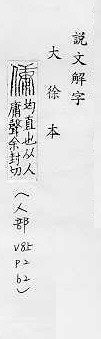 說文解字
大徐本
傭
均直也从人
庸聲余封切
(人部 V85 P2 b2)